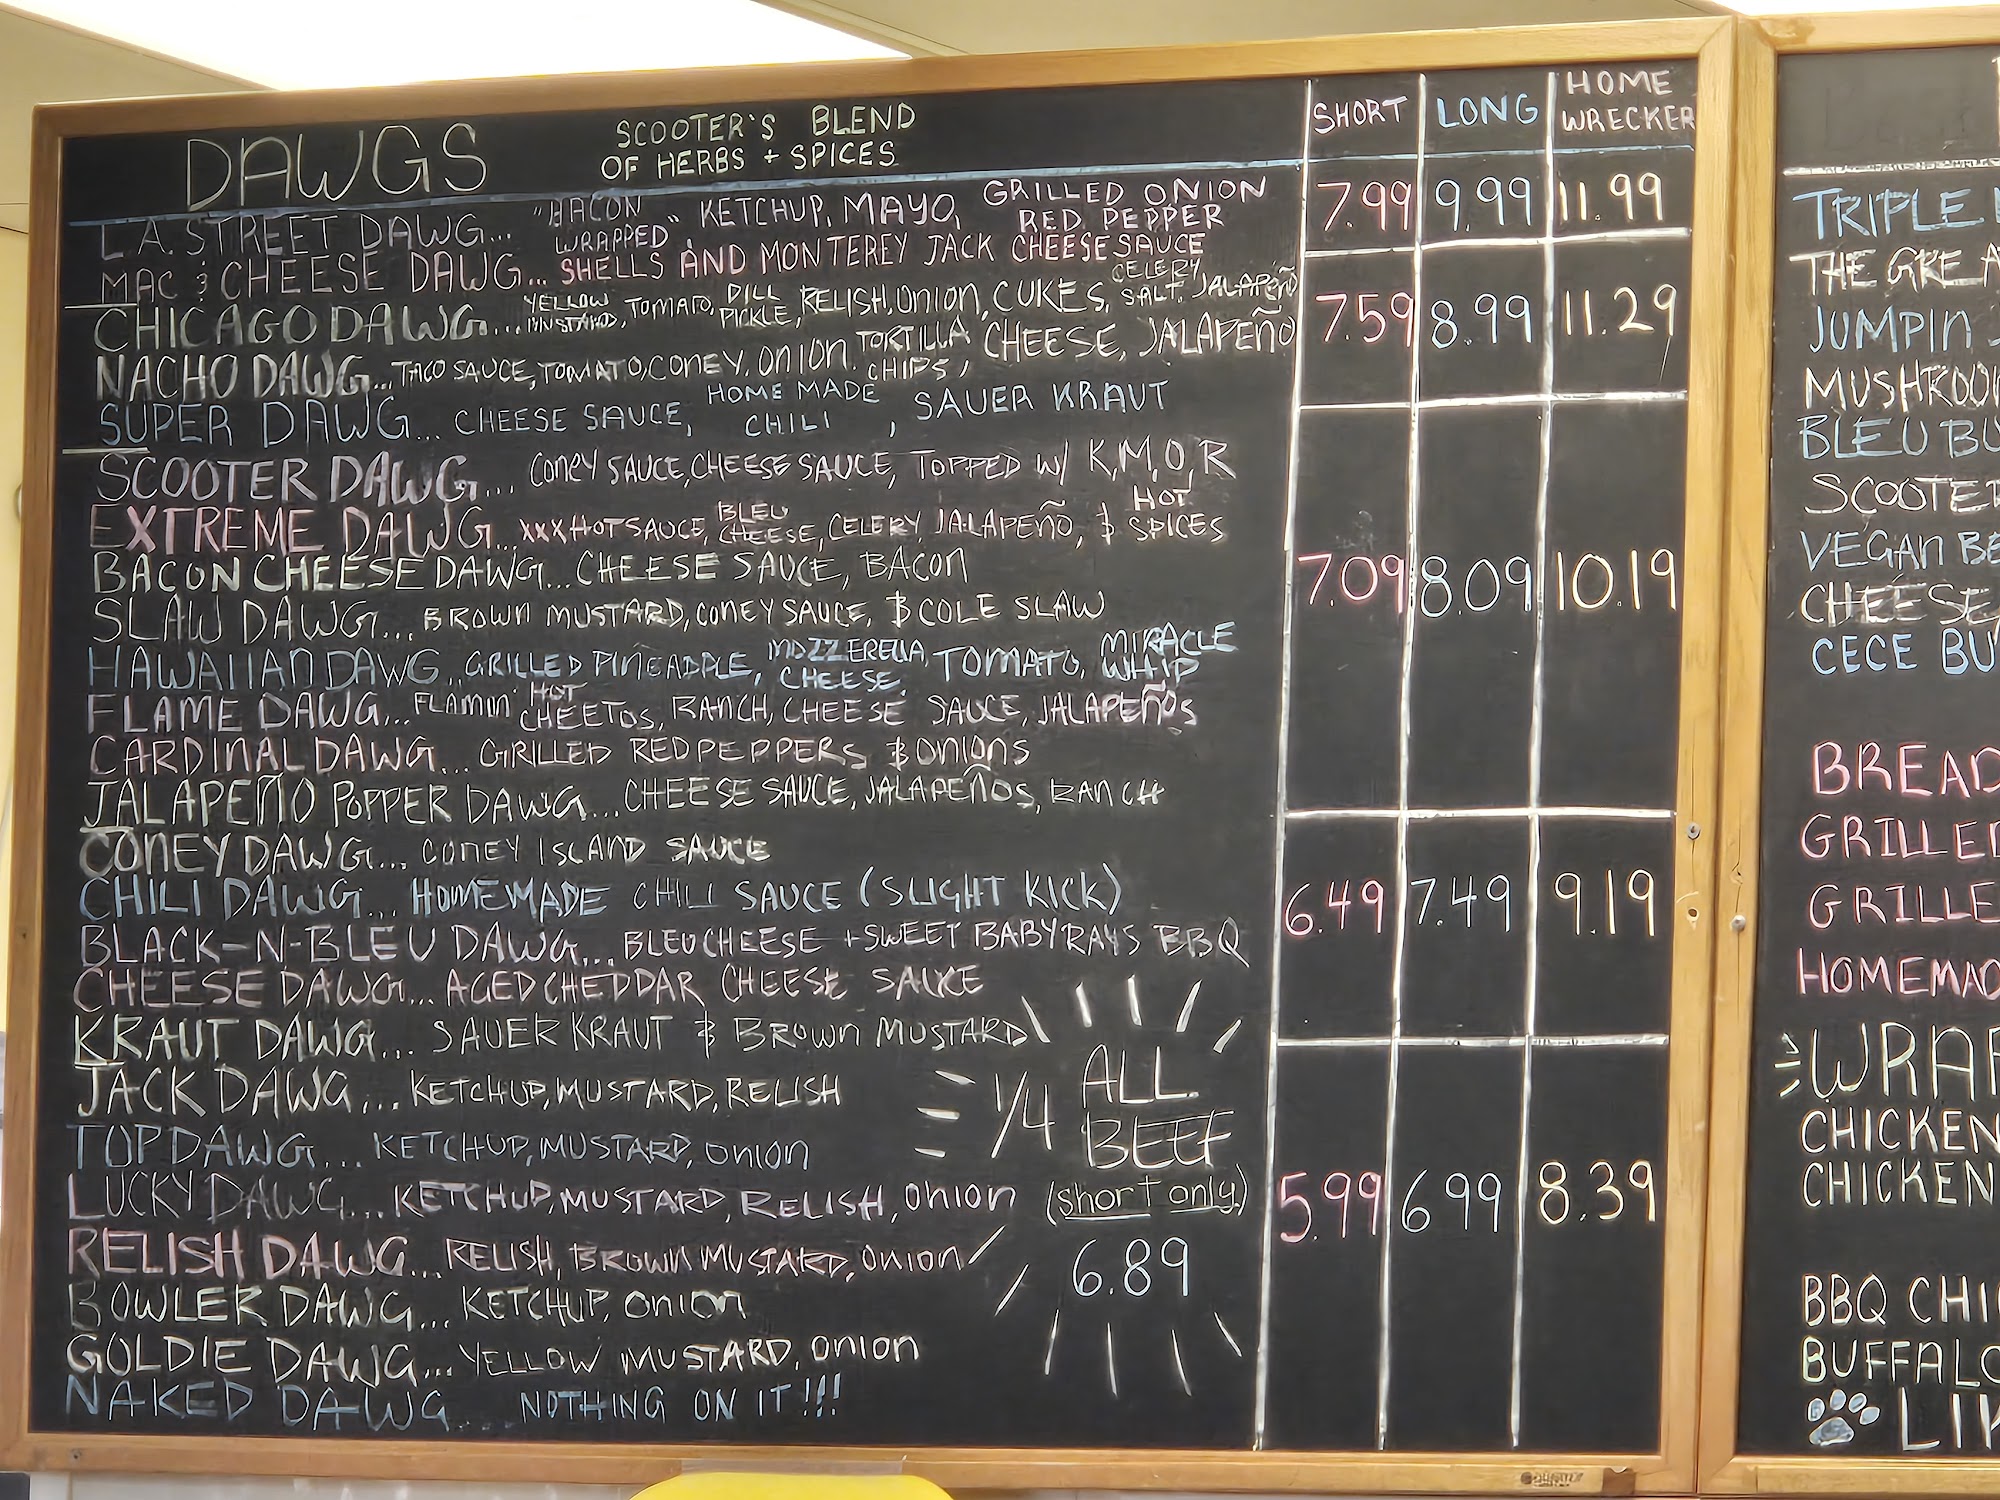 DAWGS
SCOOTER'S BLEND
OF HERBS + SPICES
SHORT LONG HOME WRECKER
L.A. STREET DAWG... "BACON WRAPPED", KETCHUP, MAYO, GRILLED ONION RED PEPPER
MAC & CHEESE DAWG... SHELLS AND MONTEREY JACK CHEESE SAUCE
7.99 9.99 11.99
CHICAGO DAWG... YELLOW MUSTARD, TOMATO, DILL PICKLE, RELISH, ONION, CUKES, CELERY SALT, JALAPEÑO
NACHO DAWG... TACO SAUCE, TOMATO, CONEY, ONION, TORTILLA CHIPS, CHEESE, JALAPEÑO
SUPER DAWG... CHEESE SAUCE, HOME MADE CHILI, SAUER KRAUT
7.59 8.99 11.29
SCOOTER DAWG... CONEY SAUCE, CHEESE SAUCE, TOPPED W/ K,M,O,R
EXTREME DAWG... XXX HOT SAUCE, BLEU CHEESE, CELERY, JALAPEÑO, & HOT SPICES
BACON CHEESE DAWG... CHEESE SAUCE, BACON
SLAW DAWG... BROWN MUSTARD, CONEY SAUCE, & COLE SLAW
HAWAIIAN DAWG.. GRILLED PINEAPPLE, MOZZERELLA CHEESE, TOMATO, MIRACLE WHIP
FLAME DAWG... FLAMIN' HOT CHEETOS, RANCH, CHEESE SAUCE, JALAPEÑOS
CARDINAL DAWG... GRILLED RED PEPPERS & ONIONS
JALAPEÑO POPPER DAWG... CHEESE SAUCE, JALAPEÑOS, RANCH
7.09 8.09 10.19
CONEY DAWG... CONEY ISLAND SAUCE
CHILI DAWG... HOMEMADE CHILI SAUCE (SLIGHT KICK)
BLACK-N-BLEU DAWG... BLEU CHEESE + SWEET BABY RAYS BBQ
CHEESE DAWG... AGED CHEDDAR CHEESE SAUCE
KRAUT DAWG... SAUER KRAUT & BROWN MUSTARD
6.49 7.49 9.19
JACK DAWG... KETCHUP, MUSTARD, RELISH
TOP DAWG... KETCHUP, MUSTARD, ONION
LUCKY DAWG... KETCHUP, MUSTARD, RELISH, ONION
RELISH DAWG... RELISH, BROWN MUSTARD, ONION
BOWLER DAWG... KETCHUP, ONION
GOLDIE DAWG... YELLOW MUSTARD, ONION
NAKED DAWG NOTHING ON IT!!!
5.99 6.99 8.39
1/4 ALL BEEF
(short only)
6.89
TRIPLE
THE GREA
JUMPIN
MUSHROO
BLEU BU
SCOOTE
VEGAN BE
CHEESE
CECE BU
BREAD
GRILLED
GRILLE
HOMEMAD
WRAP
CHICKEN
CHICKEN
BBQ CHI
BUFFALO
LI